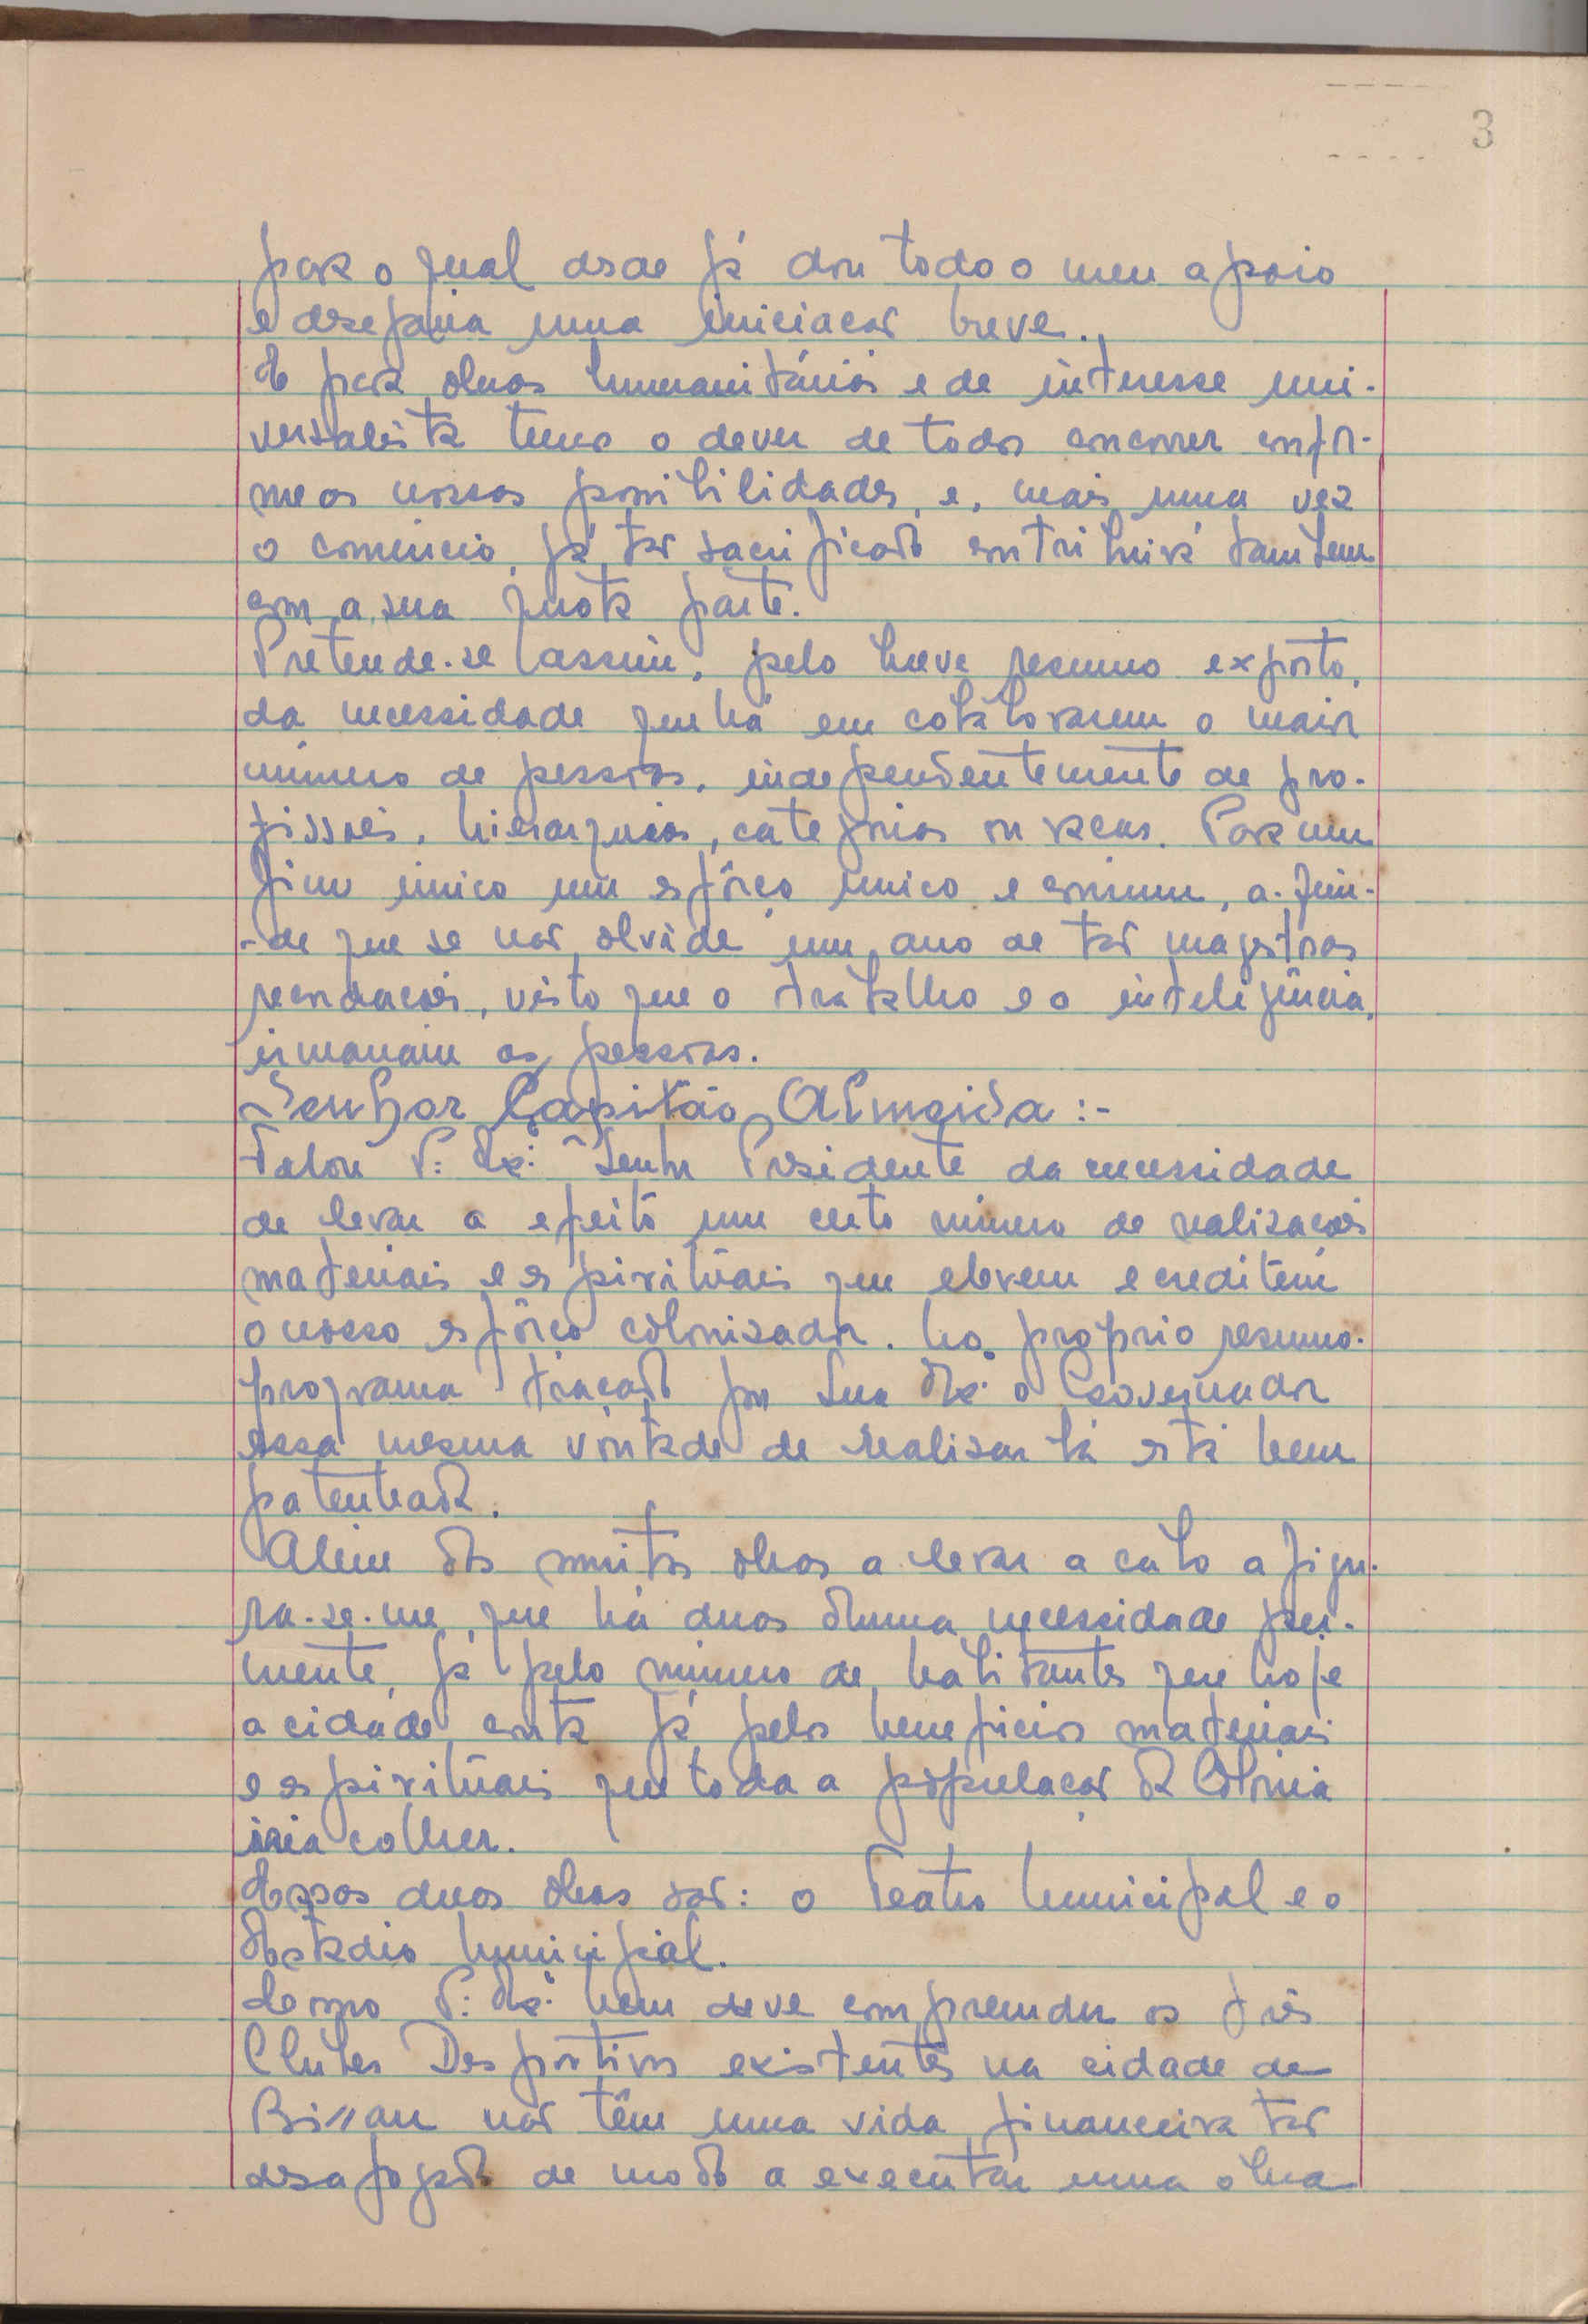 3
para o qual desde já dou todo o meu apoio
e desejaria uma iniciação breve.
E para obras humanitárias e de interesse uni-
versalista temos o dever de todos concorrer confor-
me as nossas possibilidades, e, mais uma vez
o comércio, já tão sacrificado contribuirá também
com a sua quota parte.
Pretende-se assim, pelo breve resumo exposto,
da necessidade que há em colaborarem o maior
número de pessoas, independentemente de pro-
fissões, hierarquias, categorias ou raças. Para um
fim único um esfôrço único e comum, a-fim-
-de que se não olvide um ano de tão magestosas
recordações, visto que o trabalho e a inteligência,
irmanam as pessoas.
Senhor Capitão Almeida:-
Falou V: Ex: Senhor Presidente da necessidade
de levar a efeito um certo número de realizações
materiais e espirituais que elevem e creditem
o nosso esfôrço colonisador. No próprio resumo-
programa traçado por Sua Ex: o Governador
essa mesma vontade de realisar lá está bem
patenteada.
Além das muitas obras a levar a cabo afigu-
ra-se-me que há duas duma necessidade pre-
mente, já pelo número de habitantes que hoje
a cidade conta já pelos beneficios materiais
e espirituais que toda a população da Colónia
iria colher.
Essas duas obras são: o Teatro Municipal e o
Estádio Municipal.
Como V: Ex: bem deve compreender os três
Clubes Desportivos existentes na cidade de
Bissau não têm uma vida financeira tão
desafogada de modo a executar uma obra